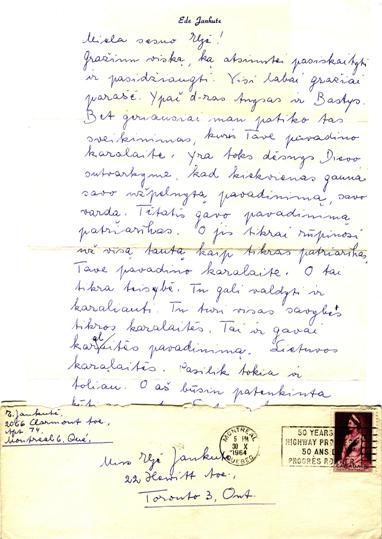 Ede Jankutė
Miela sesuo Elzė!
Gražinu viską, ką atsiuntei pasiskaityti
ir pasidžiaugti. Visi labai gražiai
parašė. Ypač d-ras Anysas ir Bastys.
Bet geriausiai man patiko tas
sveikinimas, kuris Tave pavadino
karalaite. Yra toks dėsnys Dievo
sutvarkyme, kad kiekvienas gauna
savo užpelnytą pavadinimą, savo
vardą. Tėtatis gavo pavadinimą
patriarkas. O jis tikrai rūpinosi
už visą tautą kaip tikras patriarkas,
Tave pavadino karalaite. O tai
tikra teisybė. Tu gali valdyti ir
karaliauti. Tu turi visas savybės
tikros karalaitės. Tai ir gavai
karalaitės pavadinimą. Lietuvos
karalaitės. Pasilik tokia ir
toliau. O aš būsiu patenkinta
E. Jankutė,
2066 Clarmont Ave,
Apt 74,
Montreal 6, Qué.
MONTREAL
5 PM
30 X
1964
QUEBEC
50 YEARS
HIGHWAY PRO
50 ANS D
PROGRÈS RO
Miss Elzė Jankutė
22 Hewitt Ave,
Toronto 3, Ont.